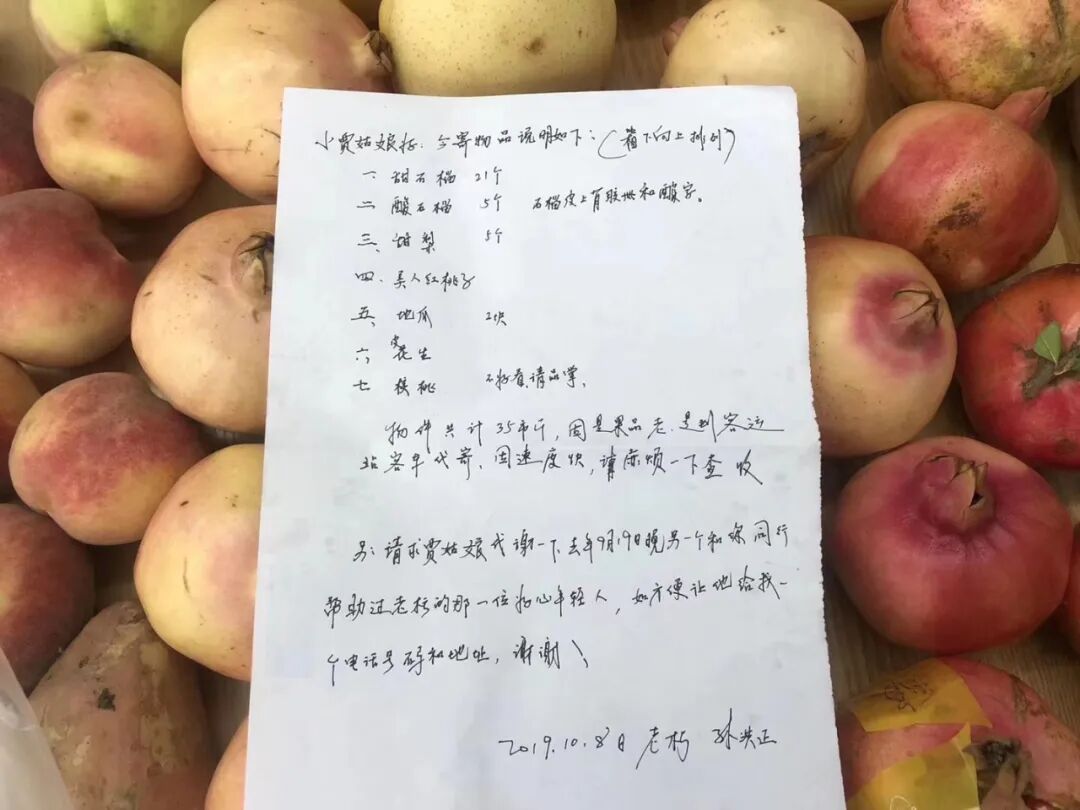 小贾姑娘好:今寄物品说明如下:(着下向上排列)
一 甜石榴 21个
二 酸石榴 5个 石榴皮上有胶带和酸字。
三、甜梨 5个
四、美人红桃子
五、地瓜 2块
六 花生
七 核桃 不好看请品尝。
物件共计35市斤,因是果品老是到客运
站客车代寄、因速度快,请麻烦一下查收
另:请求贾姑娘代谢一下去年9月19日晚另一个和你同行
帮助过老朽的那一位好心年轻人,如方便让他给我一
个电话号码和地址,谢谢!
2019.10.8日 老朽 孙洪正